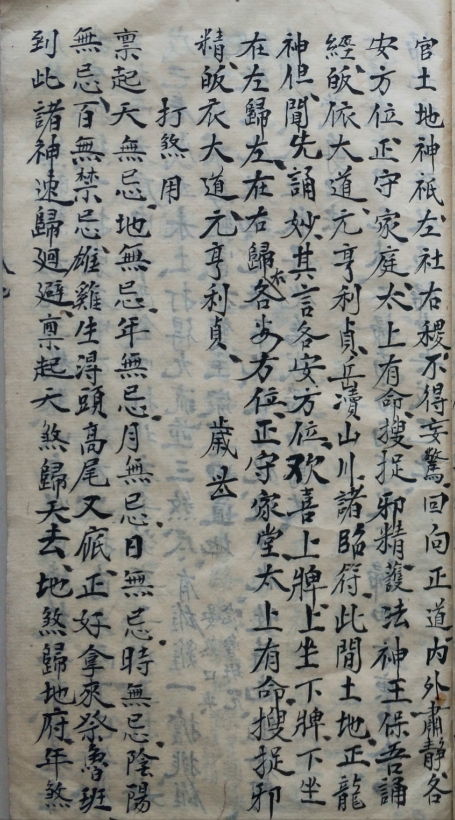 官土地神祇左社右稷不得妄驚回向正道内外肅静各
安方位正守家庭太上有命搜捉邪精護法神王保吾誦
經皈依大道元亨利貞岳瀆山川諸臨符此間土地正龍
神但聞先誦妙其言各安方位欢喜上牌上坐下牌下坐
在左歸左在右歸右各安方位正守家堂太上有命搜捉邪
精皈衣大道元亨利貞 歲
打煞用
禀起天無忌地無忌年無忌月無忌日無忌時無忌陰陽
無忌百無禁忌雄雞生淂頭高尾又底正好拿來祭魯班
到此諸神速歸廻避禀起天煞歸天去地煞歸地府年煞